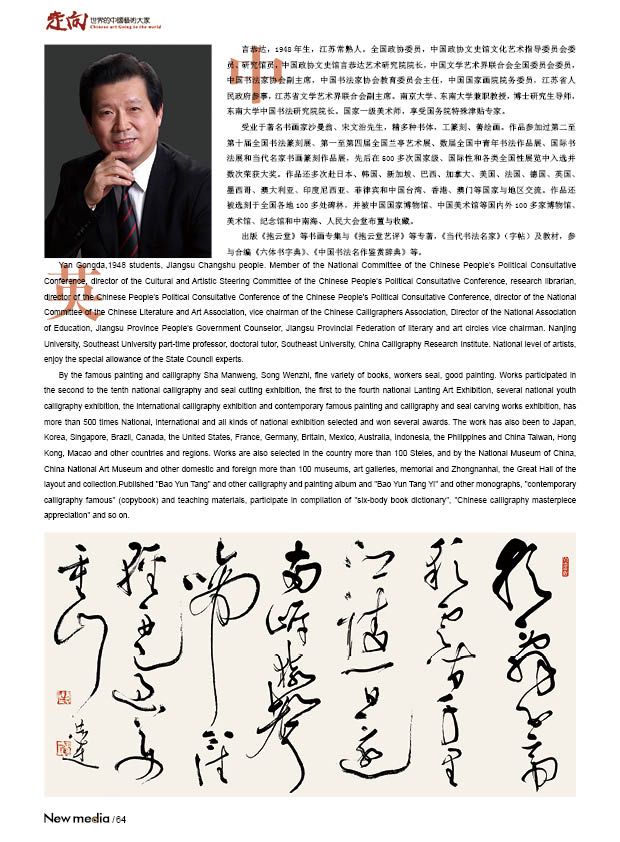 走向世界的中國藝術大家
Chinese art Going to the world
言恭达，1948 年生，江苏常熟人。全国政协委员，中国政协文史馆文化艺术指导委员会委
员、研究馆员，中国政协文史馆言恭达艺术研究院院长，中国文学艺术界联合会全国委员会委员，
中国书法家协会副主席，中国书法家协会教育委员会主任，中国国家画院院务委员，江苏省人
民政府参事，江苏省文学艺术界联合会副主席。南京大学、东南大学兼职教授，博士研究生导师，
东南大学中国书法研究院院长。国家一级美术师，享受国务院特殊津贴专家。
受业于著名书画家沙曼翁、宋文治先生，精多种书体，工篆刻、善绘画。作品参加过第二至
第十届全国书法篆刻展、第一至第四届全国兰亭艺术展、数届全国中青年书法作品展、国际书
法展和当代名家书画篆刻作品展，先后在 500 多次国家级、国际性和各类全国性展览中入选并
数次荣获大奖。作品还多次赴日本、韩国、新加坡、巴西、加拿大、美国、法国、德国、英国、
墨西哥、澳大利亚、印度尼西亚、菲律宾和中国台湾、香港、澳门等国家与地区交流。作品还
被选刻于全国各地 100 多处碑林，并被中国国家博物馆、中国美术馆等国内外 100 多家博物馆、
美术馆、纪念馆和中南海、人民大会堂布置与收藏。
出版《抱云堂》等书画专集与《抱云堂艺评》等专著，《当代书法名家》（字帖）及教材，参
与合编《六体书字典》、《中国书法名作鉴赏辞典》等。
中
英
Yan Gongda,1948 students, Jiangsu Changshu people. Member of the National Committee of the Chinese People's Political Consultative
Conference, director of the Cultural and Artistic Steering Committee of the Chinese People's Political Consultative Conference, research librarian,
director of the Chinese People's Political Consultative Conference of the Chinese People's Political Consultative Conference, director of the National
Committee of the Chinese Literature and Art Association, vice chairman of the Chinese Calligraphers Association, Director of the National Association
of Education, Jiangsu Province People's Government Counselor, Jiangsu Provincial Federation of literary and art circles vice chairman. Nanjing
University, Southeast University part-time professor, doctoral tutor, Southeast University, China Calligraphy Research Institute. National level of artists,
enjoy the special allowance of the State Council experts.
By the famous painting and calligraphy Sha Manweng, Song Wenzhi, fine variety of books, workers seal, good painting. Works participated in
the second to the tenth national calligraphy and seal cutting exhibition, the first to the fourth national Lanting Art Exhibition, several national youth
calligraphy exhibition, the international calligraphy exhibition and contemporary famous painting and calligraphy and seal carving works exhibition, has
more than 500 times National, international and all kinds of national exhibition selected and won several awards. The work has also been to Japan,
Korea, Singapore, Brazil, Canada, the United States, France, Germany, Britain, Mexico, Australia, Indonesia, the Philippines and China Taiwan, Hong
Kong, Macao and other countries and regions. Works are also selected in the country more than 100 Steles, and by the National Museum of China,
China National Art Museum and other domestic and foreign more than 100 museums, art galleries, memorial and Zhongnanhai, the Great Hall of the
layout and collection.Published "Bao Yun Tang" and other calligraphy and painting album and "Bao Yun Tang Yi" and other monographs, "contemporary
calligraphy famous" (copybook) and teaching materials, participate in compilation of "six-body book dictionary", "Chinese calligraphy masterpiece
appreciation" and so on.
朝辞白帝
彩云间千里
江陵一日还
两岸猿声
啼不住
轻舟已过万
重山
New media / 64